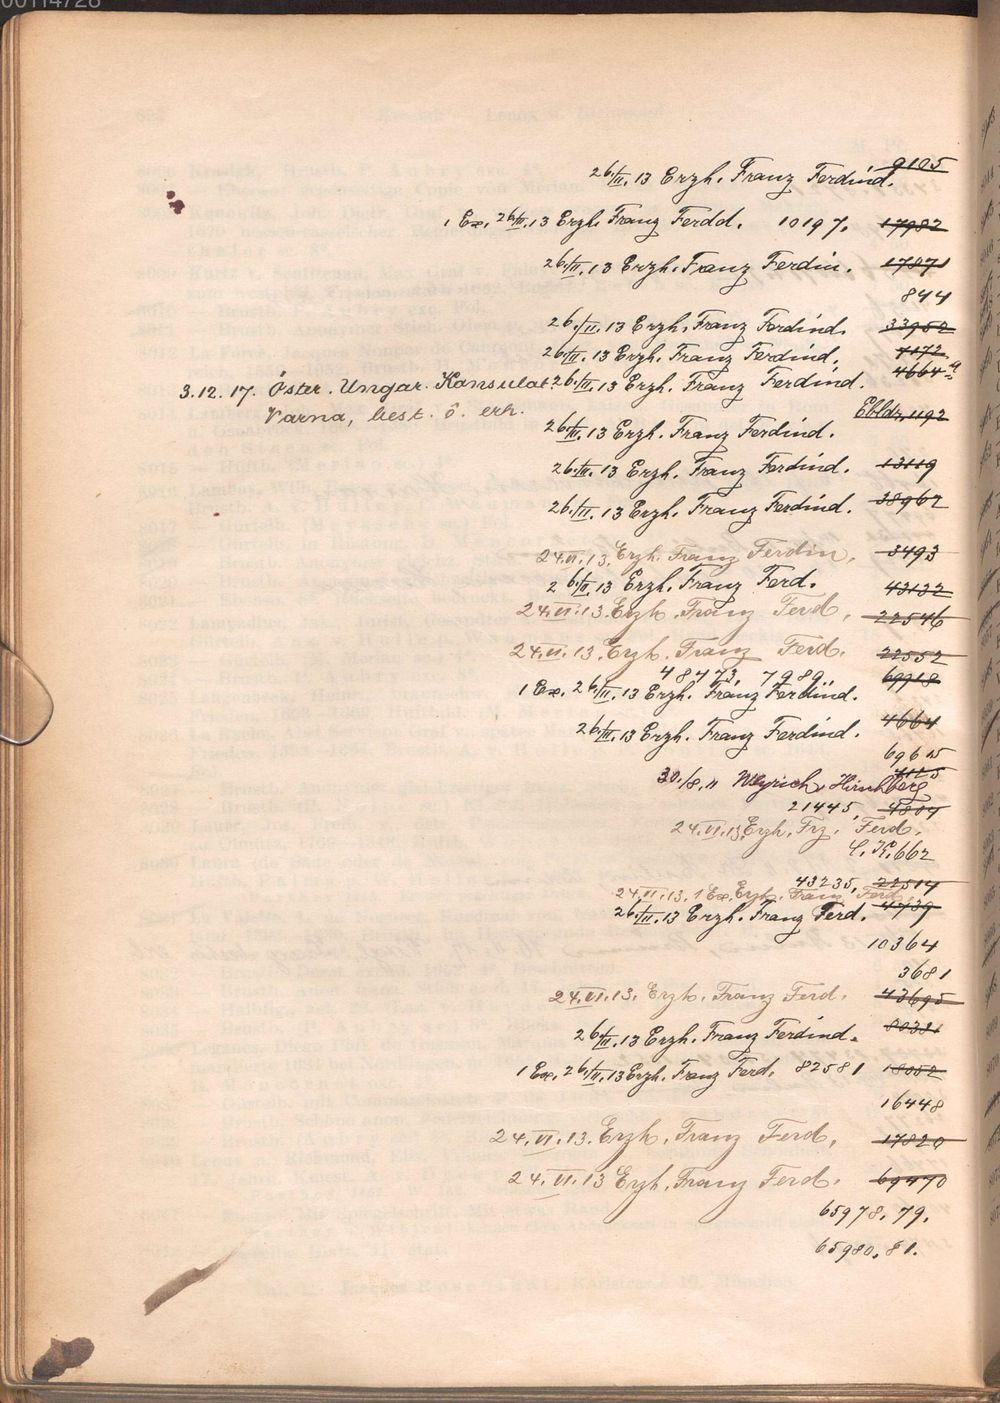 00114728
9105
26./II. 13 Erzh. Franz Ferdind.
1 Ex. 26/II. 13 Erzh. Franz Ferdd. 10197. 17982
26./II. 13 Erzh. Franz Ferdin. 17871
844
26./II. 13 Erzh. Franz Ferdind. 33952
26./II. 13 Erzh. Franz Ferdind. 7172
3.12.17. Öster. Ungar. Konsulat 26./II. 13 Erzh. Franz Ferdind. 4664 a
Varna, best. ö. erh.
Ebldr. 1192
26./II. 13 Erzh. Franz Ferdind.
26./II. 13 Erzh. Franz Ferdind. 13119
26./II. 13 Erzh. Franz Ferdind. 38967
24.VI.13. Erzh. Franz Ferdin. 3493
26./II. 13 Erzh. Franz Ferd. 43132
24.VI.13. Erzh. Franz Ferd. 22546
24.VI.13. Erzh. Franz Ferd. 22552
48473, 7989 69918
1 Ex. 26/II. 13 Erzh. Franz Ferdind.
26./II. 13 Erzh. Franz Ferdind. 4664
69615
4125
30./8. 11 Weyrich, Hirschberg
21445, 4807
24.VI.13. Erzh. Frz. Ferd.
L. K. 662
43235, 22514
24.VI.13. 1 Ex. Erzh. Franz Ferd.
26./II. 13 Erzh. Franz Ferd. 4739
10364
3681
24.VI.13. Erzh. Franz Ferd. 43695
26./II. 13 Erzh. Franz Ferdind. 8038
1 Ex. 26./II. 13 Erzh. Franz Ferd. 82581 18052
16448
24.VI.13. Erzh. Franz Ferd. 17820
24.VI.13 Erzh. Franz Ferd. 69470
65978. 79.
65980. 81.